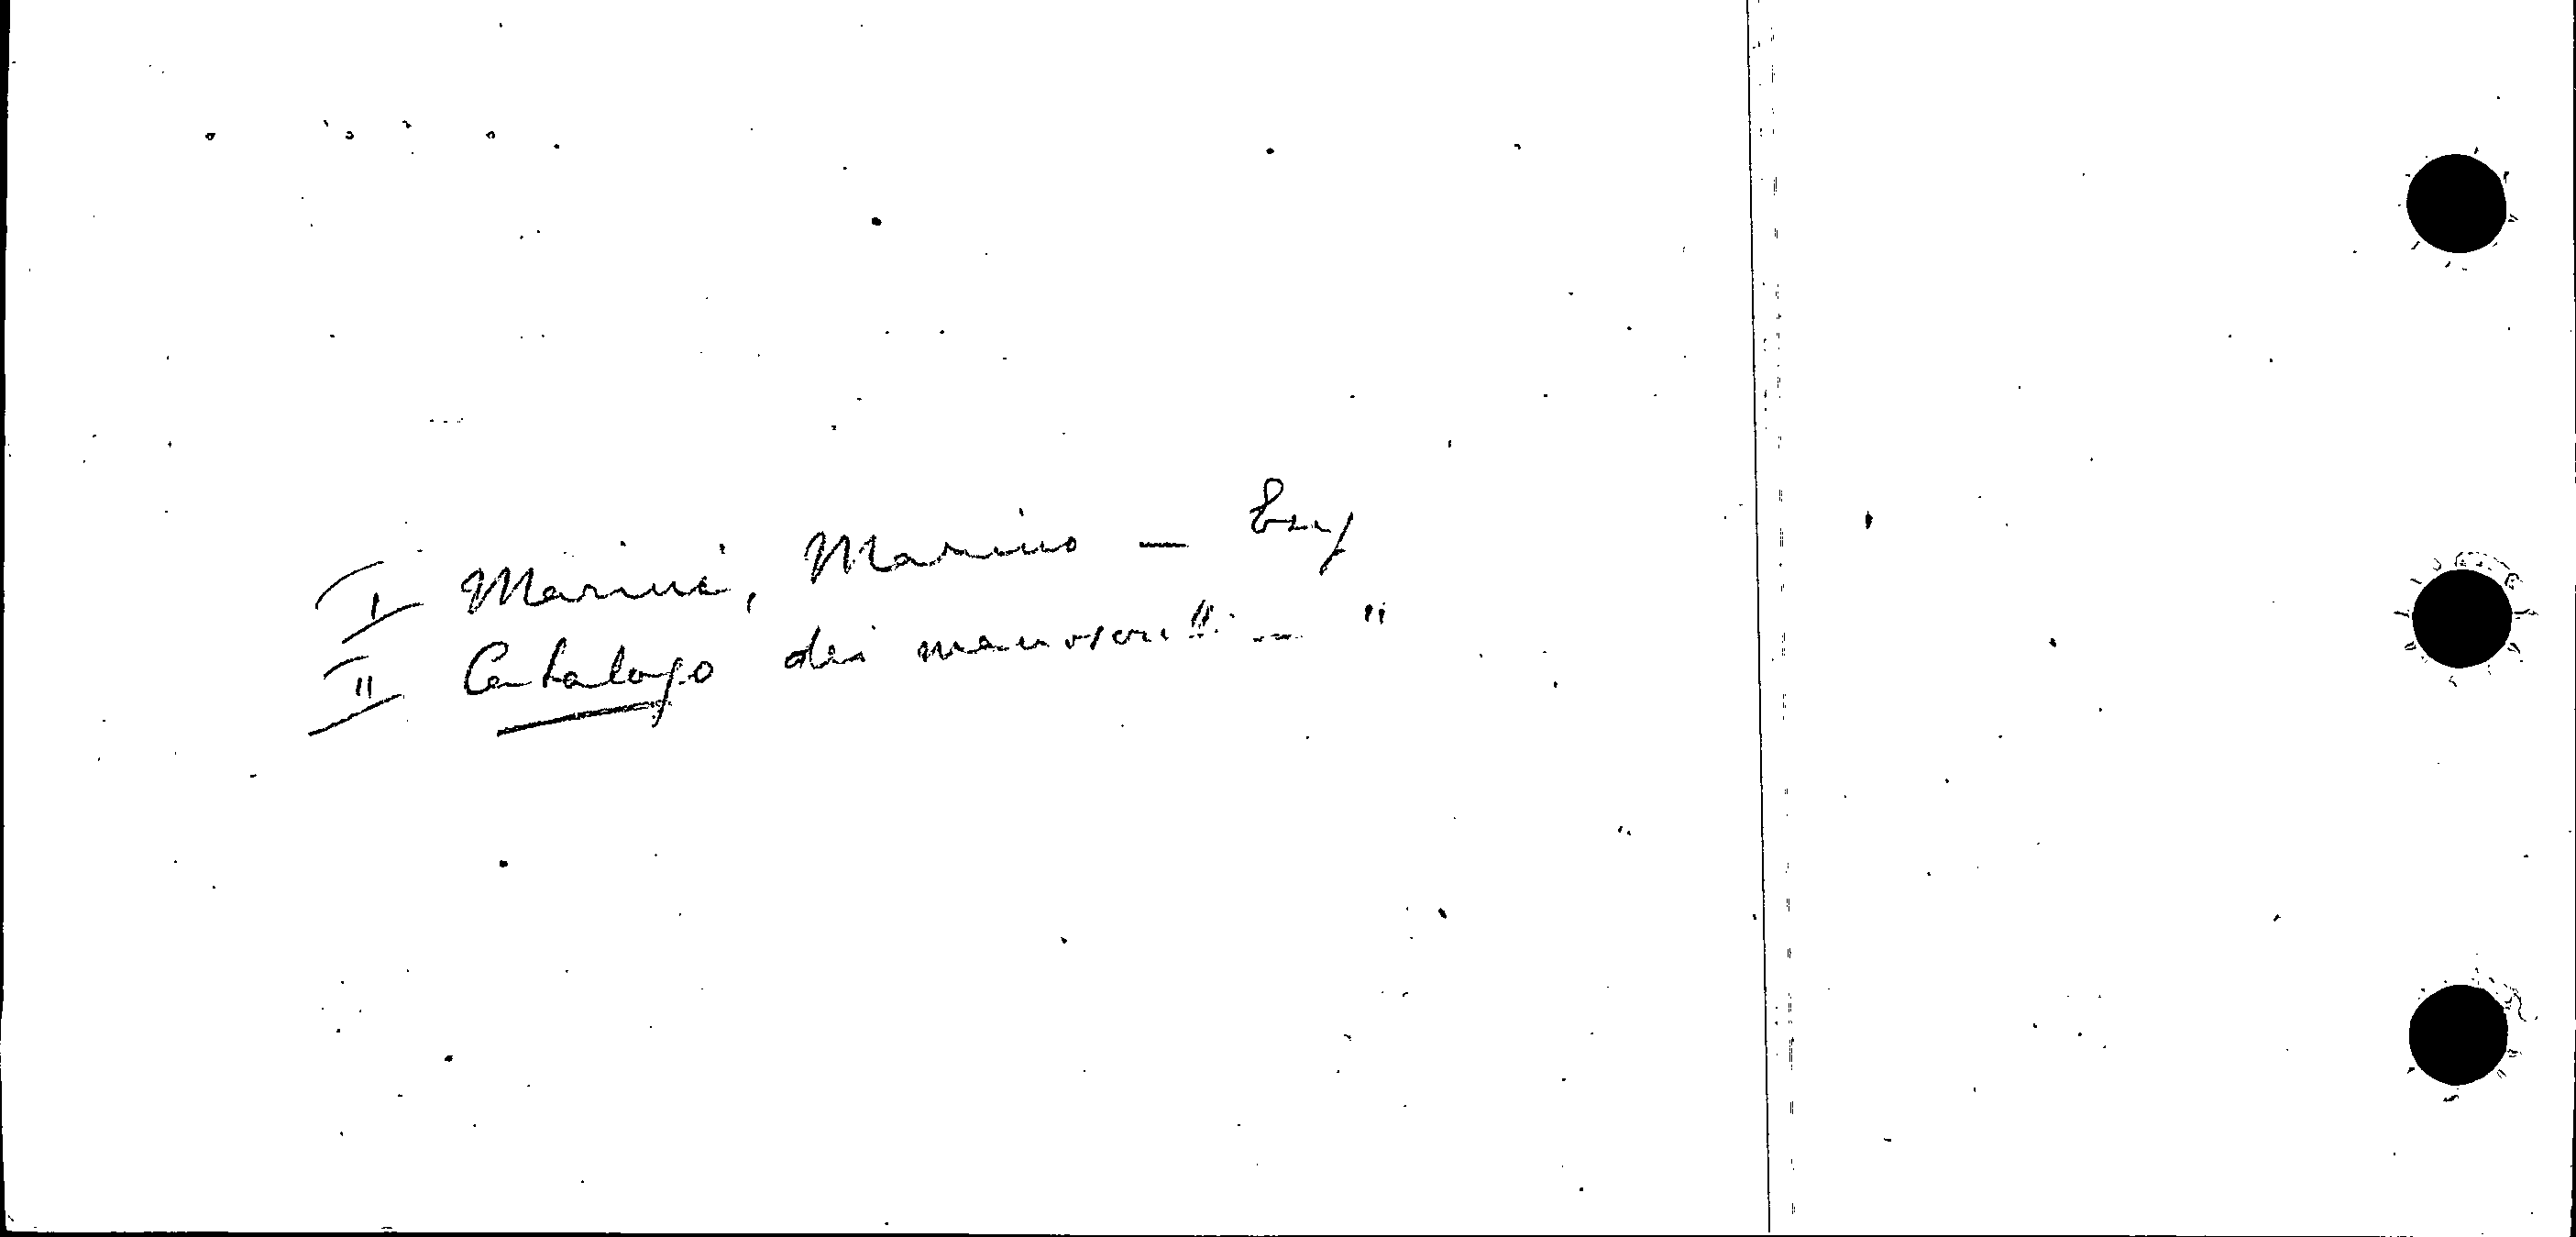 I Marini, Marino —
II Catalogo dei manoscritti — "